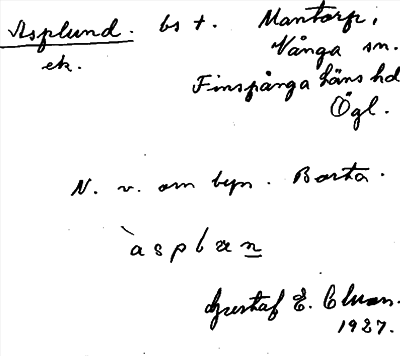 Asplund. bs t. Mantorp,
ek. Vånga sn.
Finspånga läns hd
Ögl.
N. v. om byn. Borta.
àspḷæn
Gustaf E. Clason.
1927.